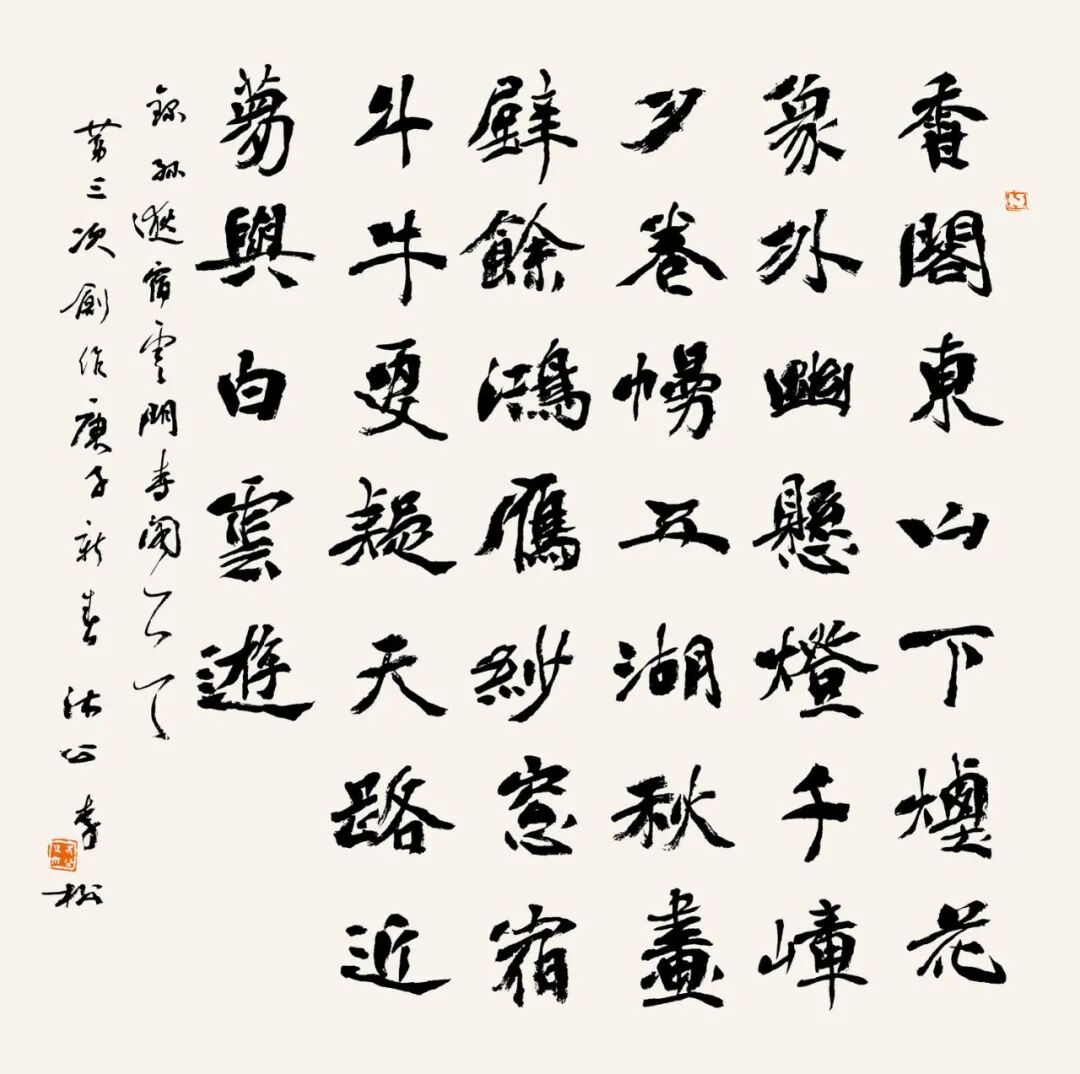 香閣東山下煙花
象外幽懸燈千嶂
夕卷幔五湖秋畫
壁餘鴻雁紗窓宿
斗牛更疑天路近
夢與白雲遊
錄孫逖宿雲門寺閣
第三次創作庚子新春